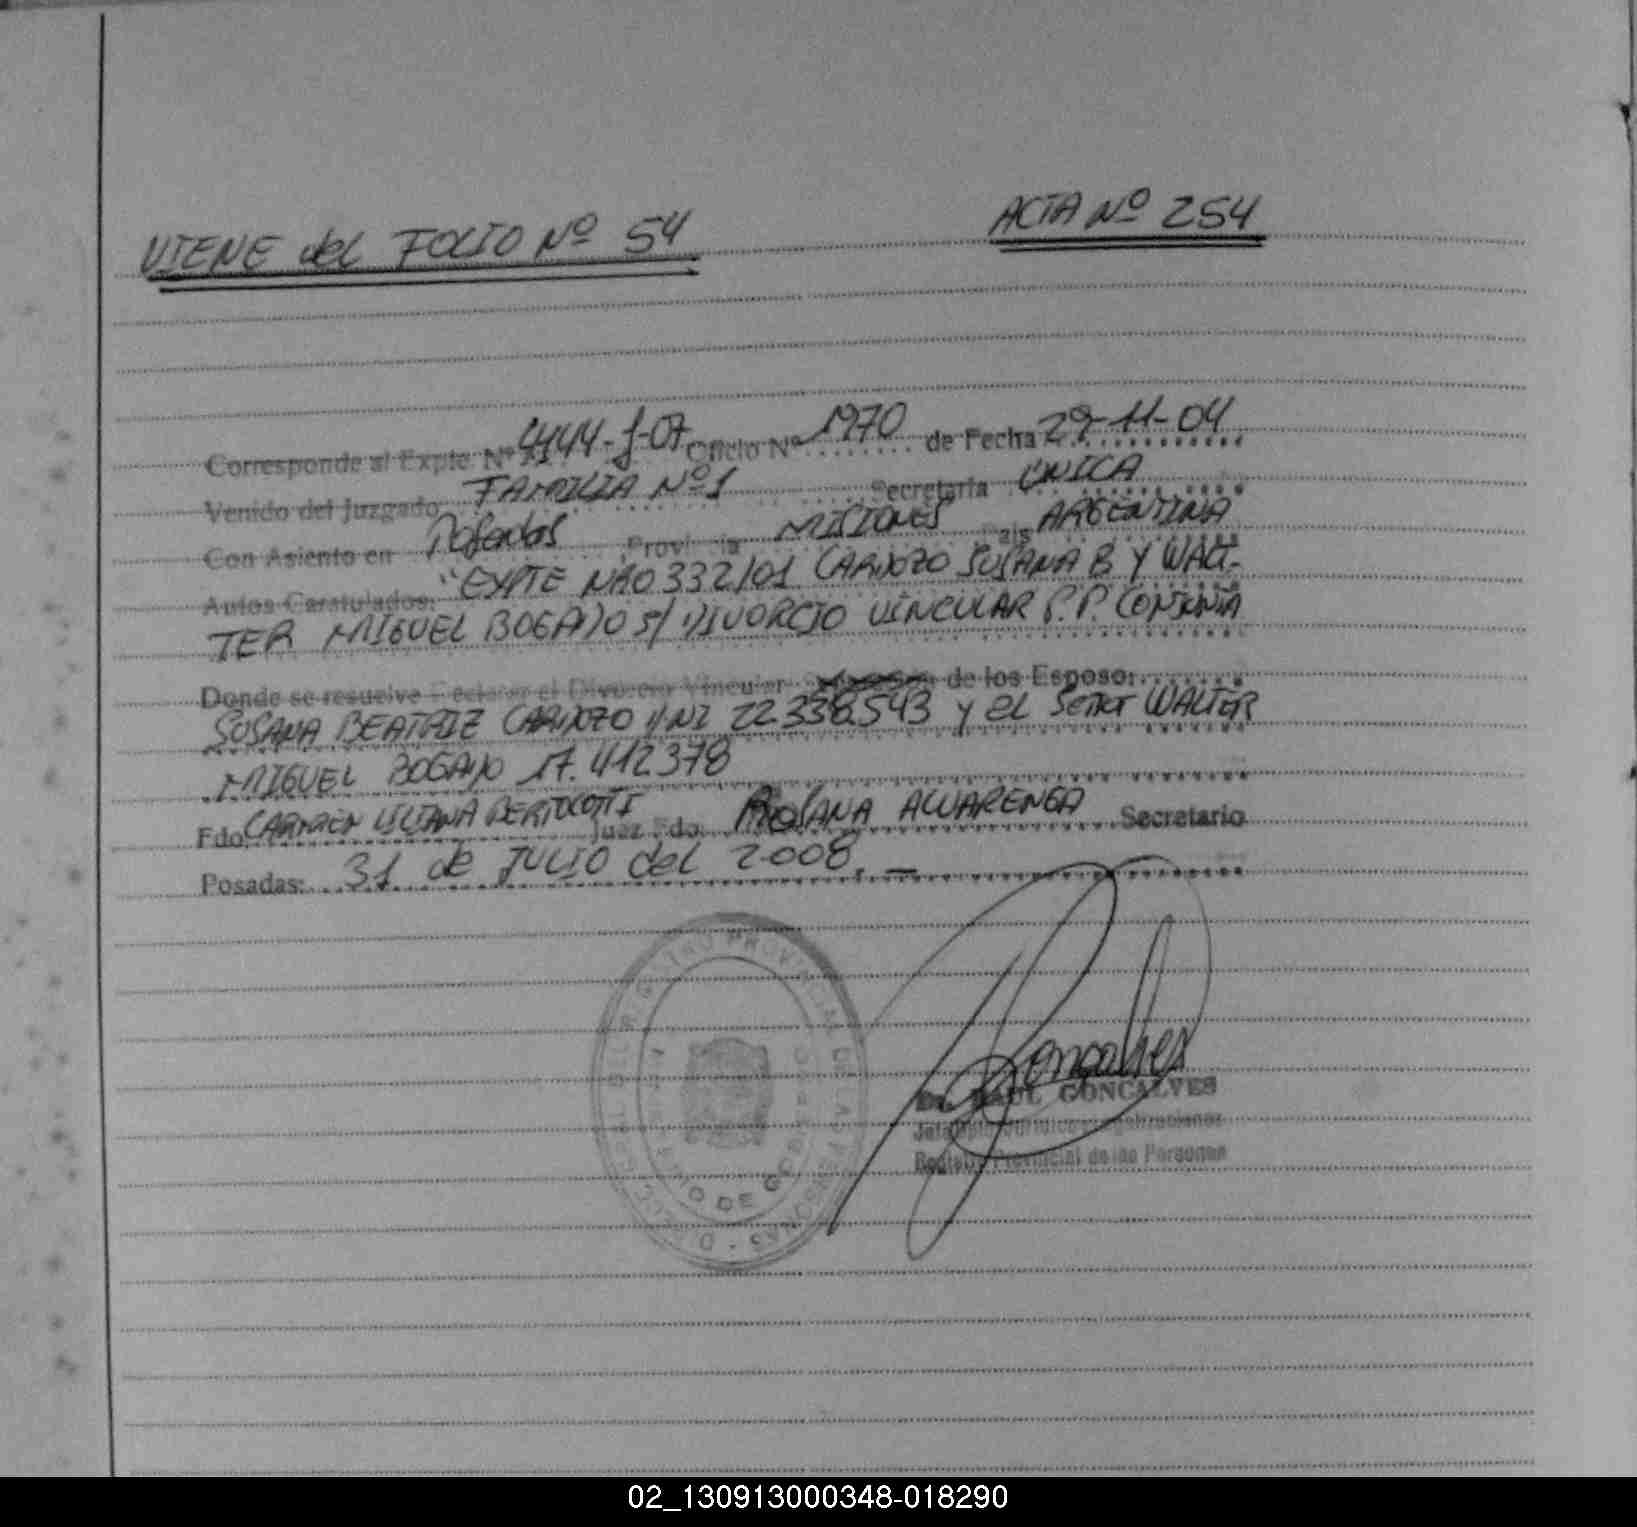 VIENE del FOLIO Nº 54
ACTA Nº 254
Corresponde al Expte. Nº 4444-J-07 Oficio Nº 1970 de Fecha 29-11-04
Venido del Juzgado FAMILIA Nº1 Secretaria ÚNICA
Con Asiento en Posadas Provincia MISIONES Pais ARGENTINA
Autos Caratulados: "EXPTE NRO 332/01 CARDOZO SUSANA B Y WALT-
TER MIGUEL BOGADO S/ DIVORCIO VINCULAR P.P. CONJUNTA
Donde se resuelve Declarar el Divorcio Vincular de los Esposo:
SUSANA BEATRIZ CARDOZO DNI 22.338.543 y el Señor WALTER
MIGUEL BOGADO 17.412.378
Fdo CARMEN LILIANA Juez Fdo: ROSANA ALVARENGA Secretario
Posadas: 31 de JULIO del 2008. _
REGISTRO PROVINCIAL DE LAS PERSONAS
DE GOBIERNO
Goncalves
Dr. RAUL GONCALVES
Registro Provincial de las Personas
02_130913000348-018290